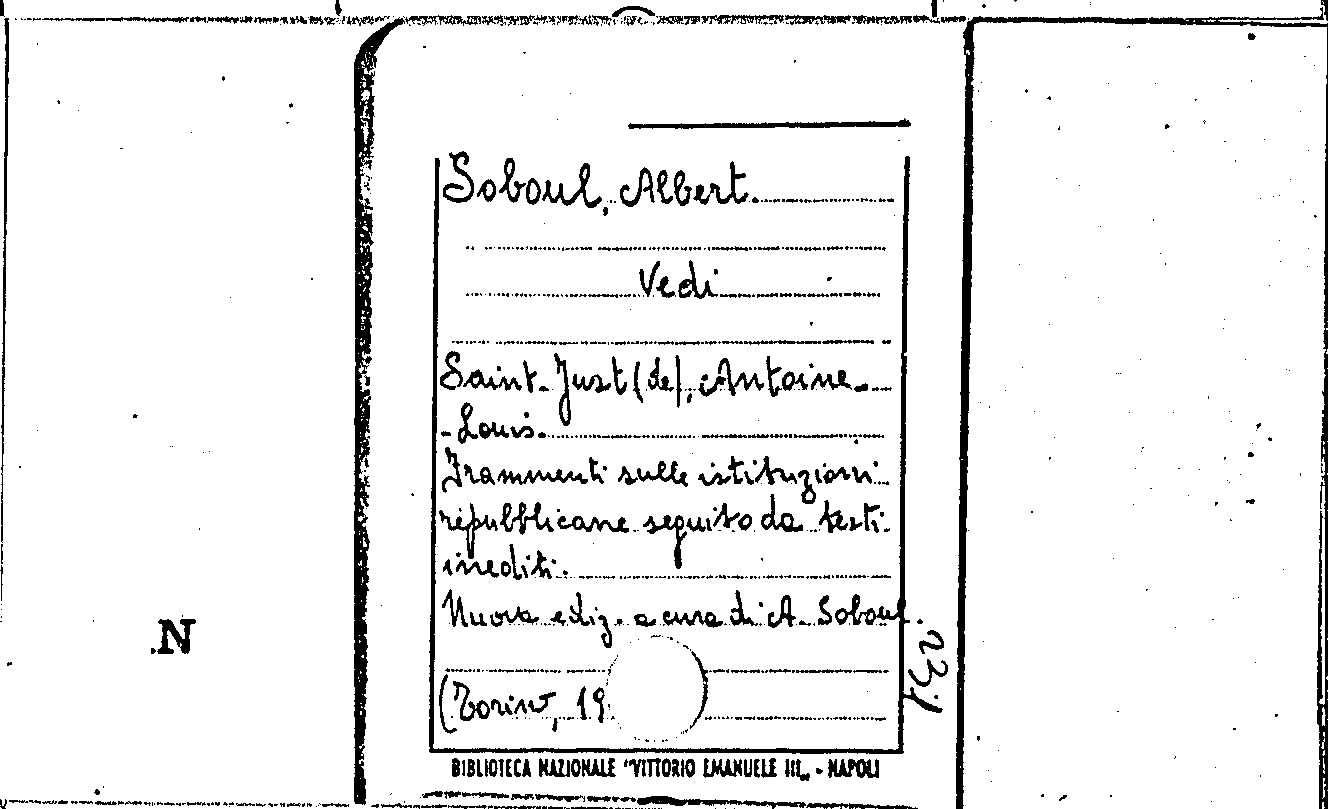 Soboul, Albert.
Vedi
Saint-Just (de), Antoine-
-Louis.
Frammenti sulle istituzioni
repubblicane seguito da testi
inediti.
Nuova ediz. a cura di A. Soboul.
(Torino, 19
N
BIBLIOTECA NAZIONALE "VITTORIO EMANUELE III„ - NAPOLI